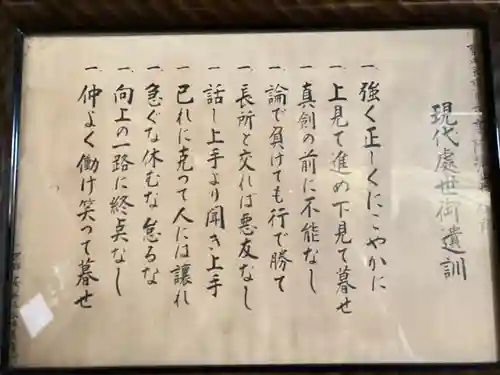 現代處世御遺訓
一、強く正しくにこやかに
一、上見て進め下見て暮せ
一、真剣の前に不能なし
一、論で負けても行で勝て
一、長所と交れば悪友なし
一、話し上手より聞き上手
一、己れに克つて人には譲れ
一、急ぐな休むな怠るな
一、向上の一路に終点なし
一、仲よく働け笑って暮せ